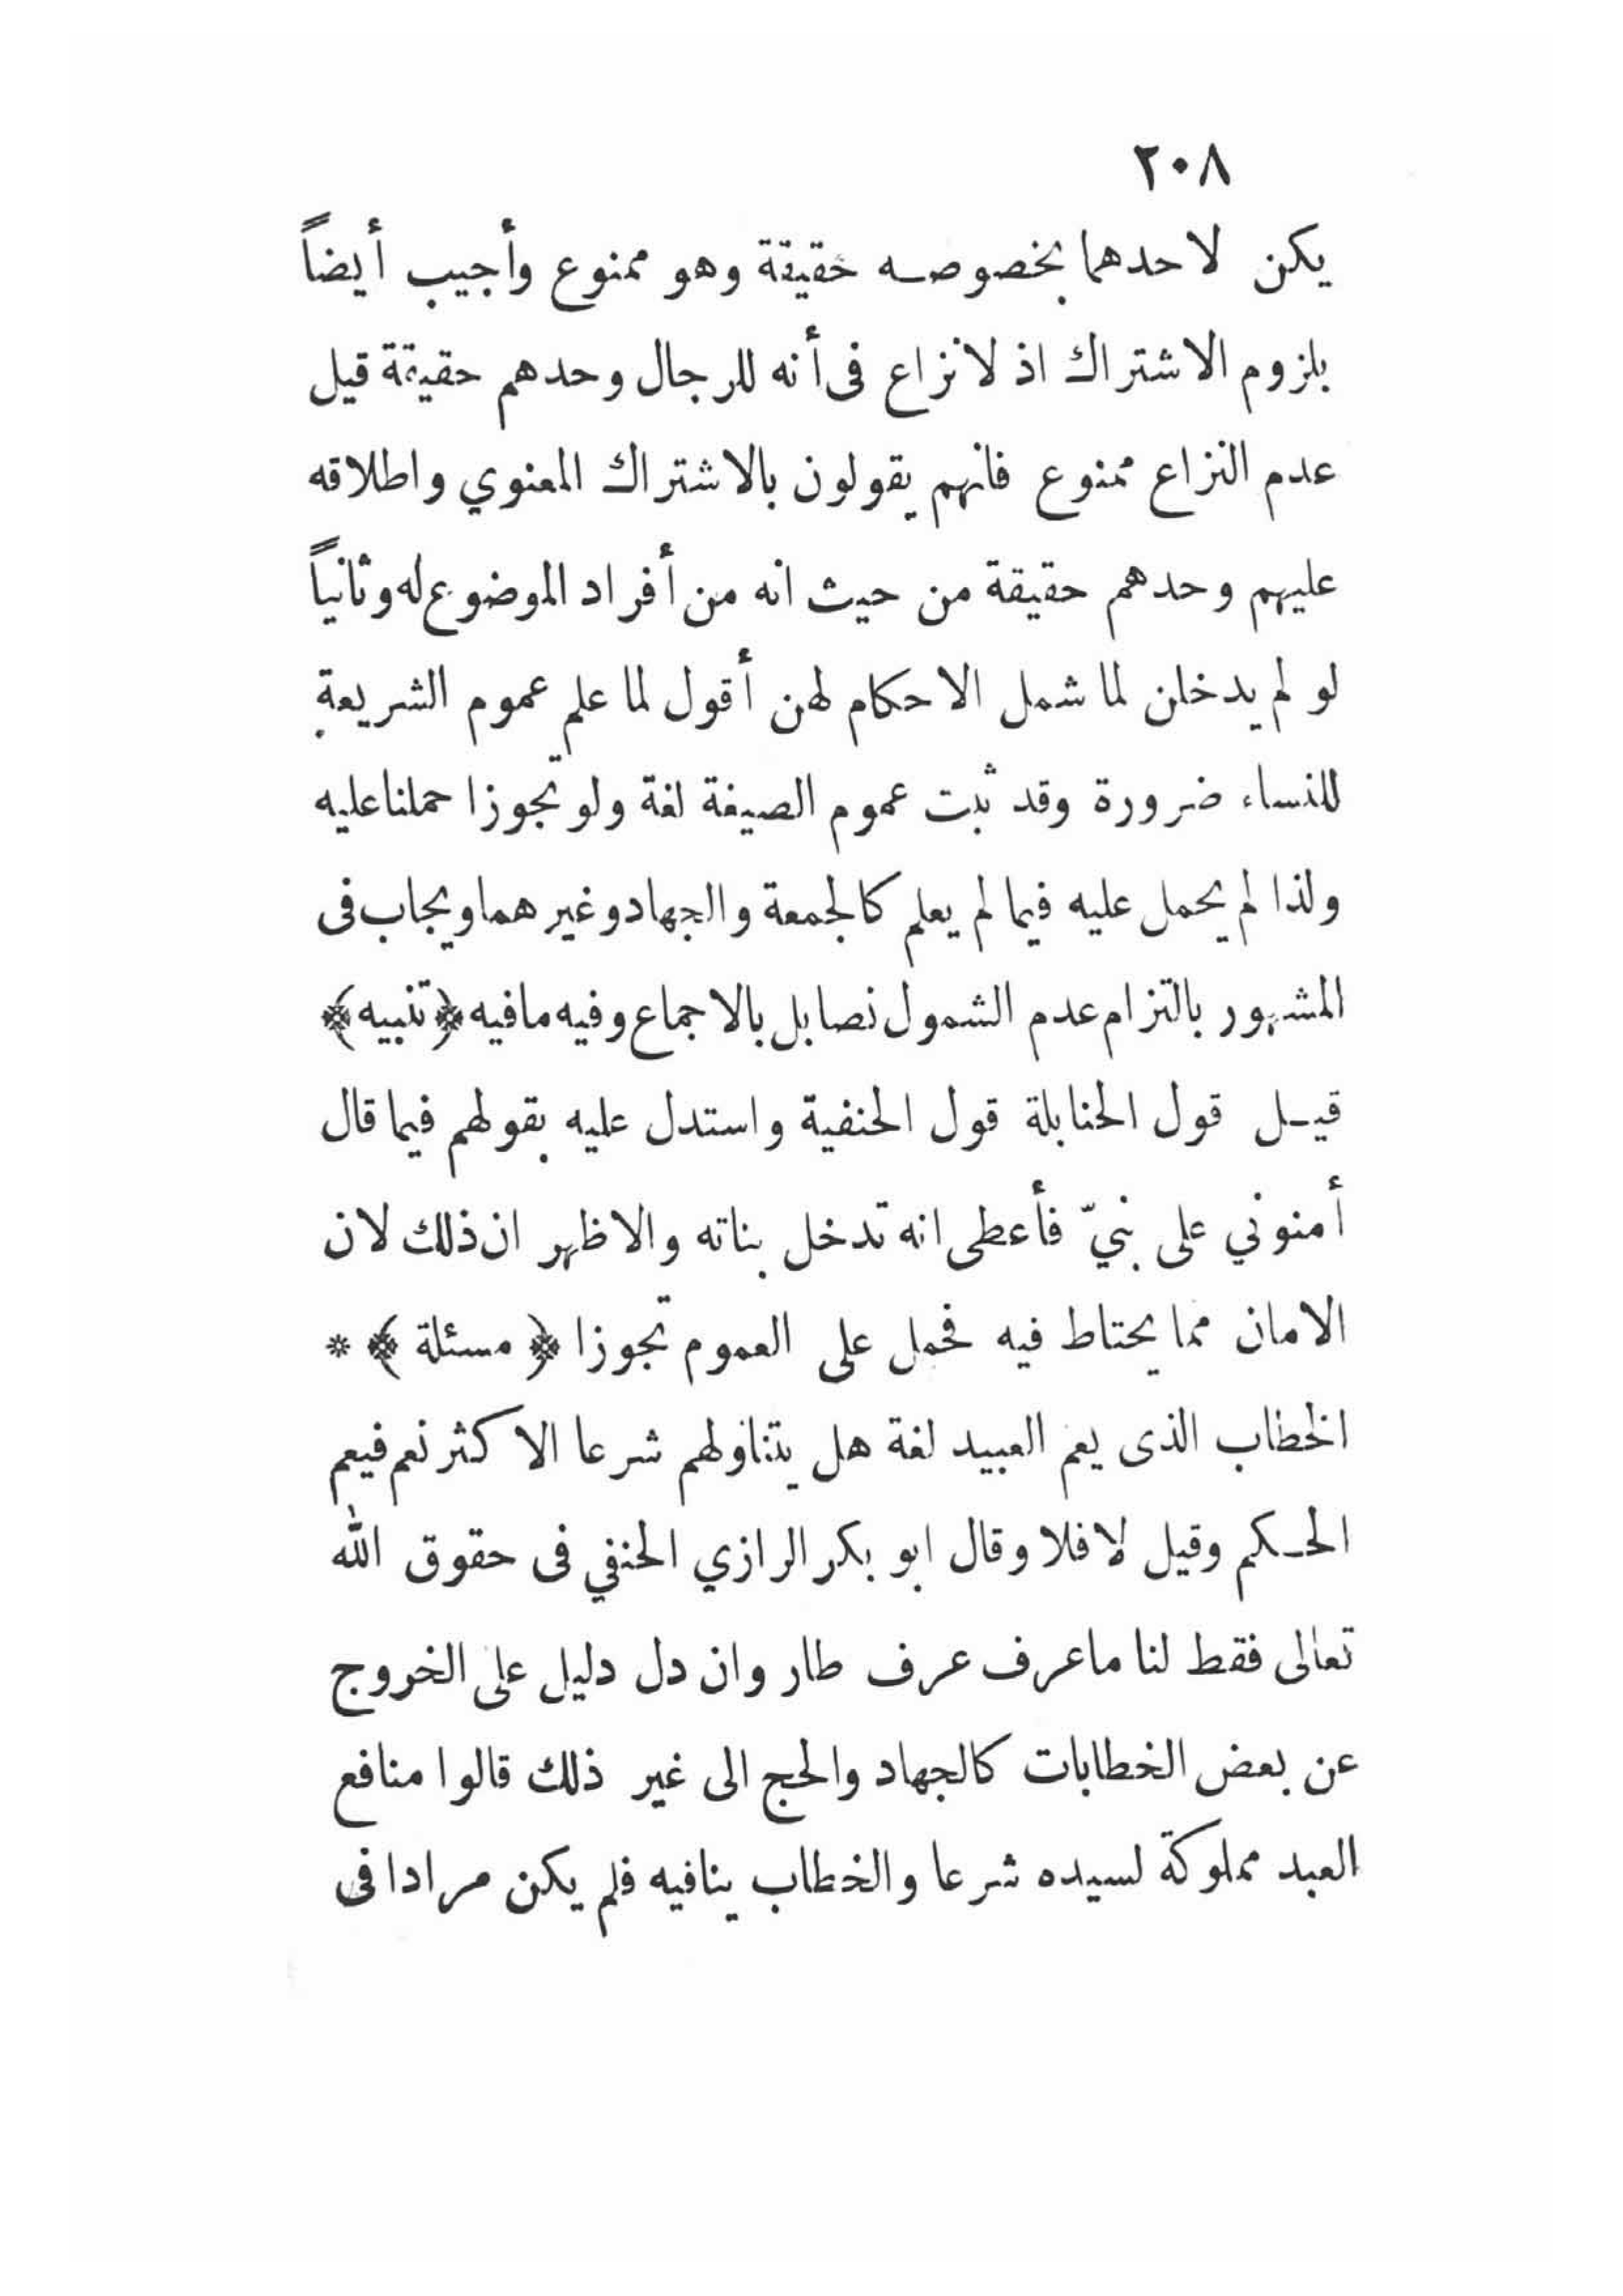 ٢٠٨
يكن لاحدهما بخصوصه حقيقة وهو ممنوع وأجيب أيضاً
بلزوم الاشتراك اذ لا نزاع فى أنه للرجال وحدهم حقيقة قيل
عدم النزاع ممنوع فانهم يقولون بالاشتراك المعنوي واطلاقه
عليهم وحدهم حقيقة من حيث انه من أفراد الموضوع له وثانياً
لو لم يدخلن لما شمل الاحكام لهن أقول لما علم عموم الشريعة
للنساء ضرورة وقد ثبت عموم الصيغة لغة ولو تجوزا حملنا عليه
ولذا لم يحمل عليه فيما لم يعلم كالجمعة والجهاد وغيرهما ويجاب فى
المشهور بالتزام عدم الشمول نصا بل بالاجماع وفيه مافيه ﴿ تنبيه ﴾
قيـل قول الحنابلة قول الحنفية واستدل عليه بقولهم فيما قال
أمنوني على بنيّ فأعطى انه تدخل بناته والاظهر ان ذلك لان
الامان مما يحتاط فيه فحمل على العموم تجوزا ﴿ مسئلة ﴾ *
الخطاب الذى يعم العبيد لغة هل يتناولهم شرعا الاكثر نعم فيعم
الحـكم وقيل لا فلا وقال ابو بكر الرازي الحنفي فى حقوق الله
تعالى فقط لنا ماعرف عرف طار وان دل دليل على الخروج
عن بعض الخطابات كالجهاد والحج الى غير ذلك قالوا منافع
العبد مملوكة لسيده شرعا والخطاب ينافيه فلم يكن مرادا فى